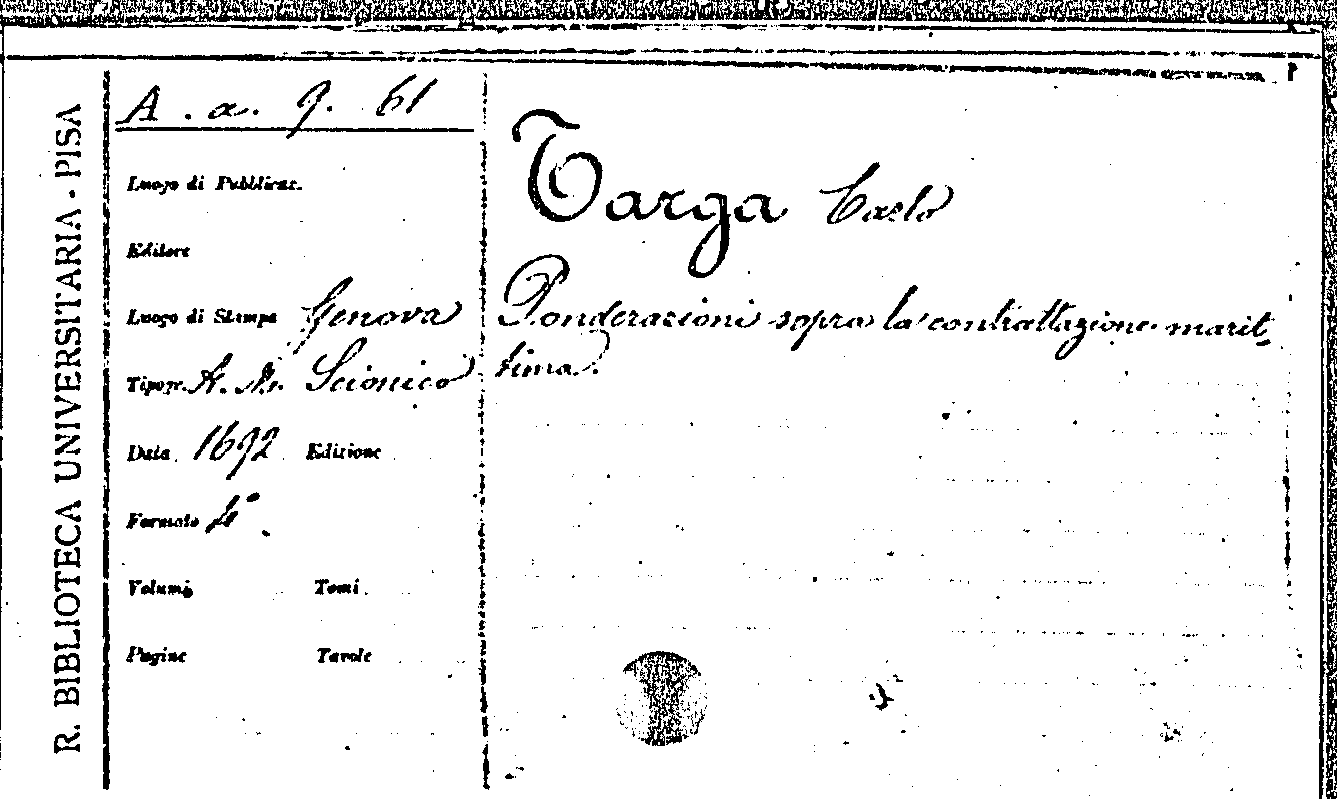 R. BIBLIOTECA UNIVERSITARIA - PISA
A. a. 9. 61
Luogo di Pubblicaz.
Editore
Luogo di Stampa Genova
Tipogr. A. M. Scionico
Data 1692 Edizione
Formato 4°
Volumi Tomi
Pagine Tavole
Targa Carlo
Ponderazioni sopra la contrattazione marit-
tima.